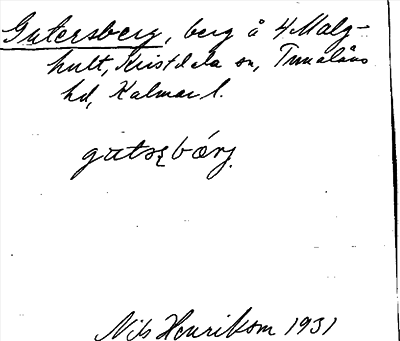 Gutersberg, berg å 4 Malg-
hult, Kristdala sn, Tunaläns
hd, Kalmar l.
gutsȩbærj.
Nils Henrikson 1931